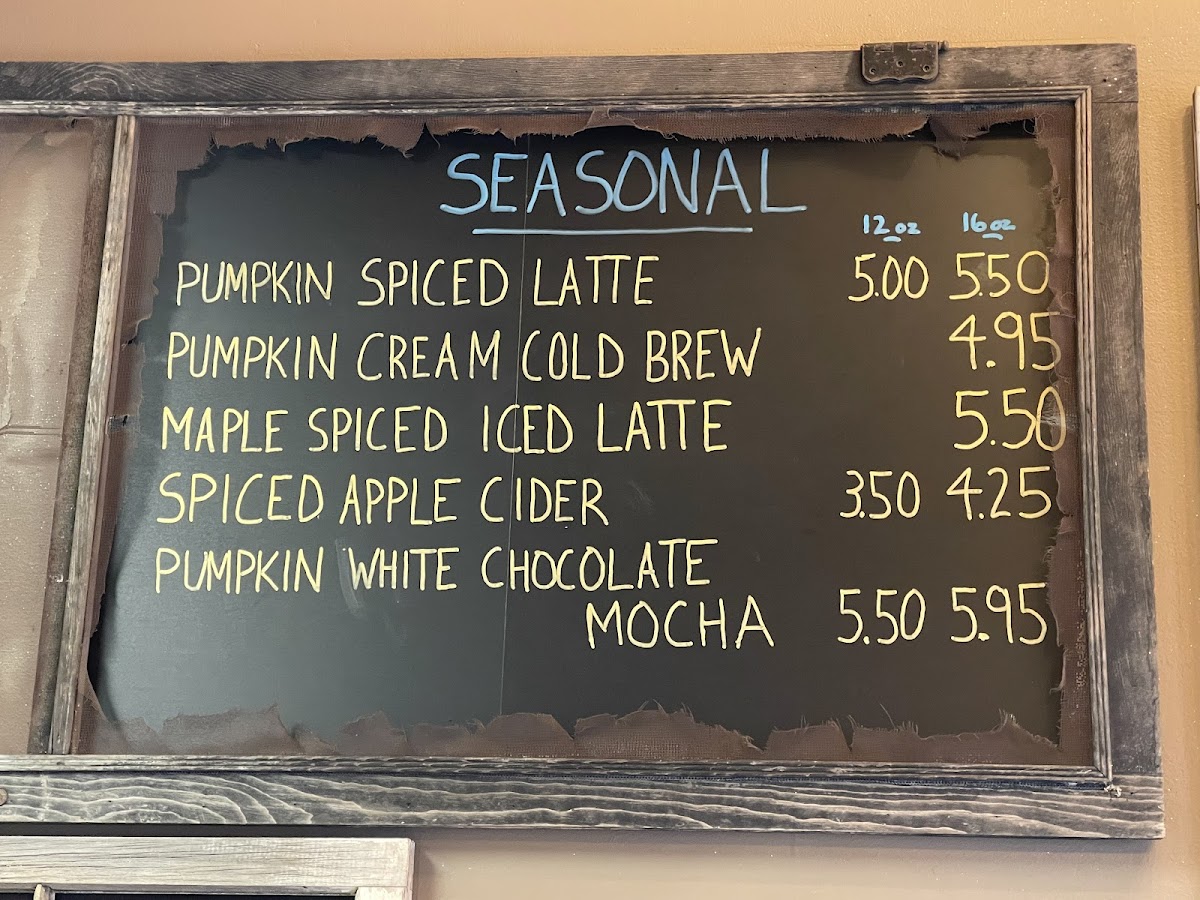 SEASONAL
12oz 16oz
PUMPKIN SPICED LATTE 5.00 5.50
PUMPKIN CREAM COLD BREW 4.95
MAPLE SPICED ICED LATTE 5.50
SPICED APPLE CIDER 3.50 4.25
PUMPKIN WHITE CHOCOLATE
MOCHA 5.50 5.95